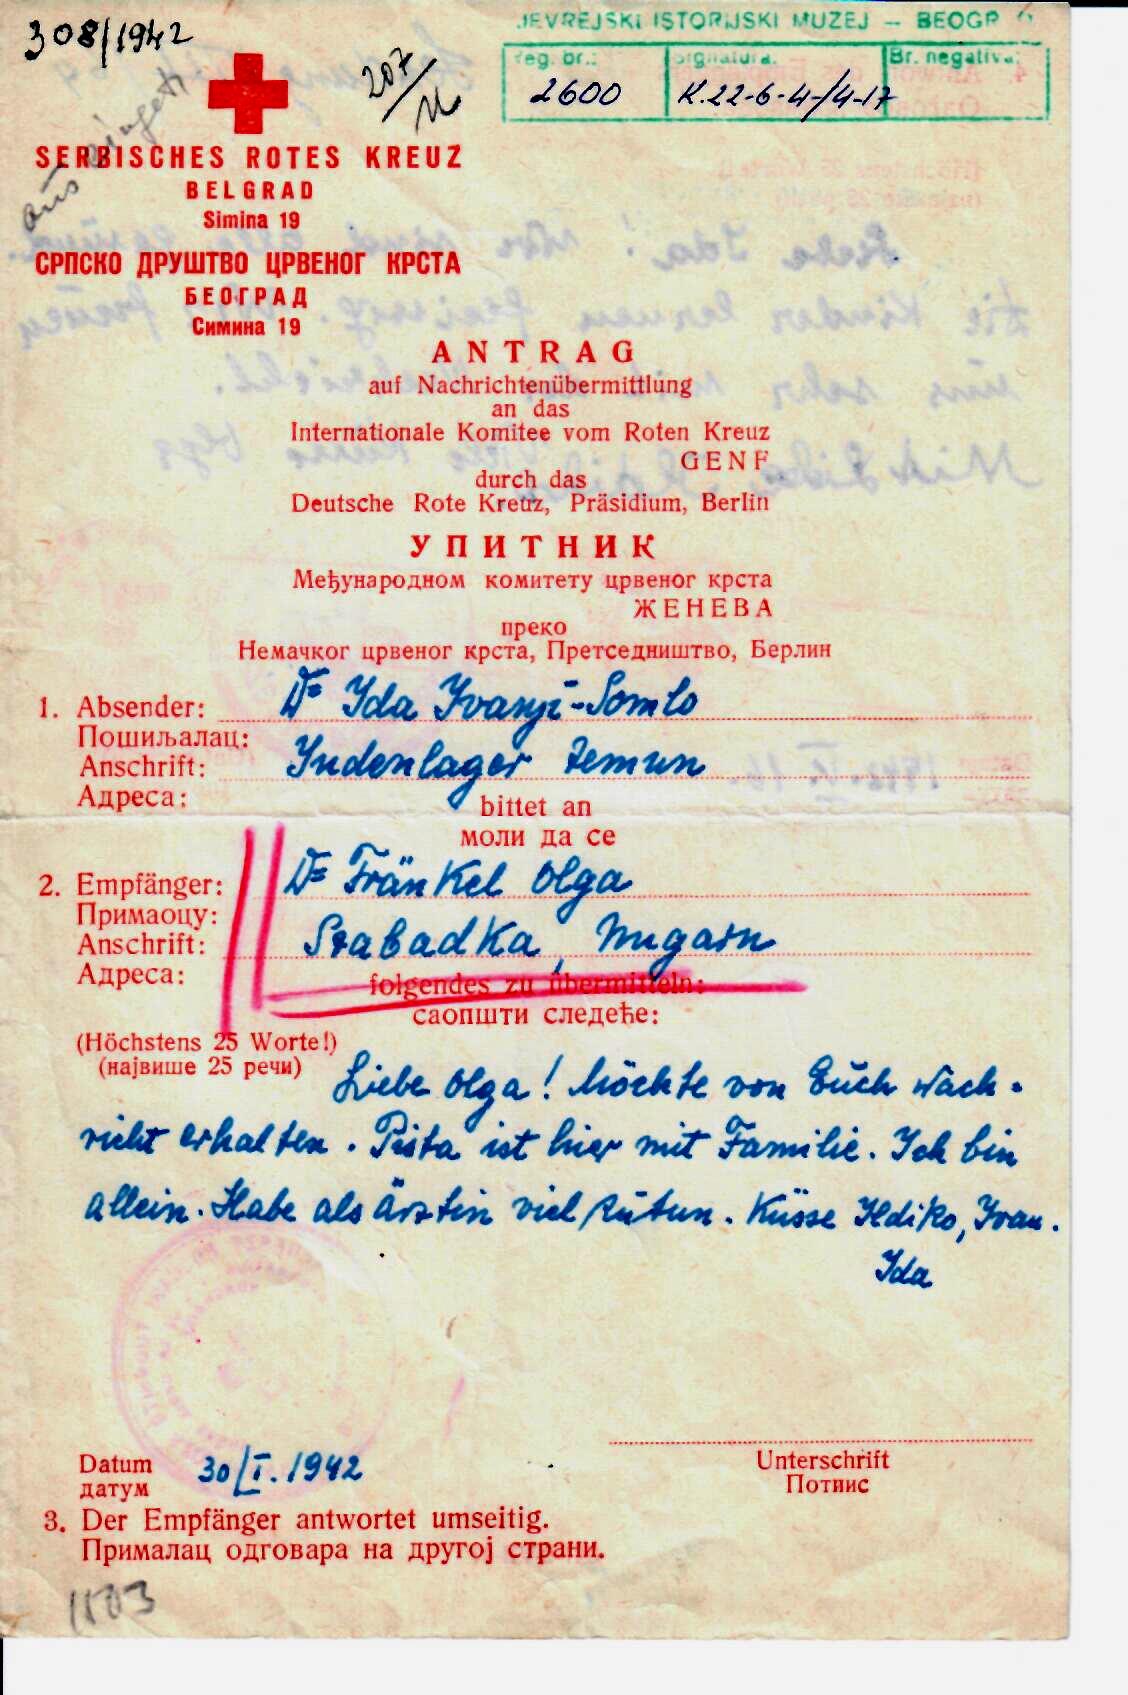 308/1942
207/
JEVREJSKI ISTORIJSKI MUZEJ — BEOGR
reg. br.: signatura: Br. negativa:
2600 K.22-6-4-/4-17
SERBISCHES ROTES KREUZ
BELGRAD
Simina 19
СРПСКО ДРУШТВО ЦРВЕНОГ КРСТА
БЕОГРАД
Симина 19
ANTRAG
auf Nachrichtenübermittlung
an das
Internationale Komitee vom Roten Kreuz
GENF
durch das
Deutsche Rote Kreuz, Präsidium, Berlin
УПИТНИК
Међународном комитету црвеног крста
ЖЕНЕВА
преко
Немачког црвеног крста, Претседништво, Берлин
1. Absender: Dr Ida Ivanji-Somlo
Пошиљалац:
Anschrift: Judenlager Zemun
Адреса:
bittet an
моли да се
2. Empfänger: Dr Fränkel Olga
Примаоцу:
Anschrift: Szabadka, Ungarn
Адреса:
folgendes zu übermitteln:
саопшти следеће:
(Höchstens 25 Worte!)
(највише 25 речи)
Liebe Olga! Möchte von Euch Nach-
richt erhalten. Pista ist hier mit Familie. Ich bin
allein. Habe als Ärztin viel zutun. Küsse Ildiko, Ivan.
Ida
Datum 30/I. 1942
датум
Unterschrift
Потпис
3. Der Empfänger antwortet umseitig.
Прималац одговара на другој страни.
1503